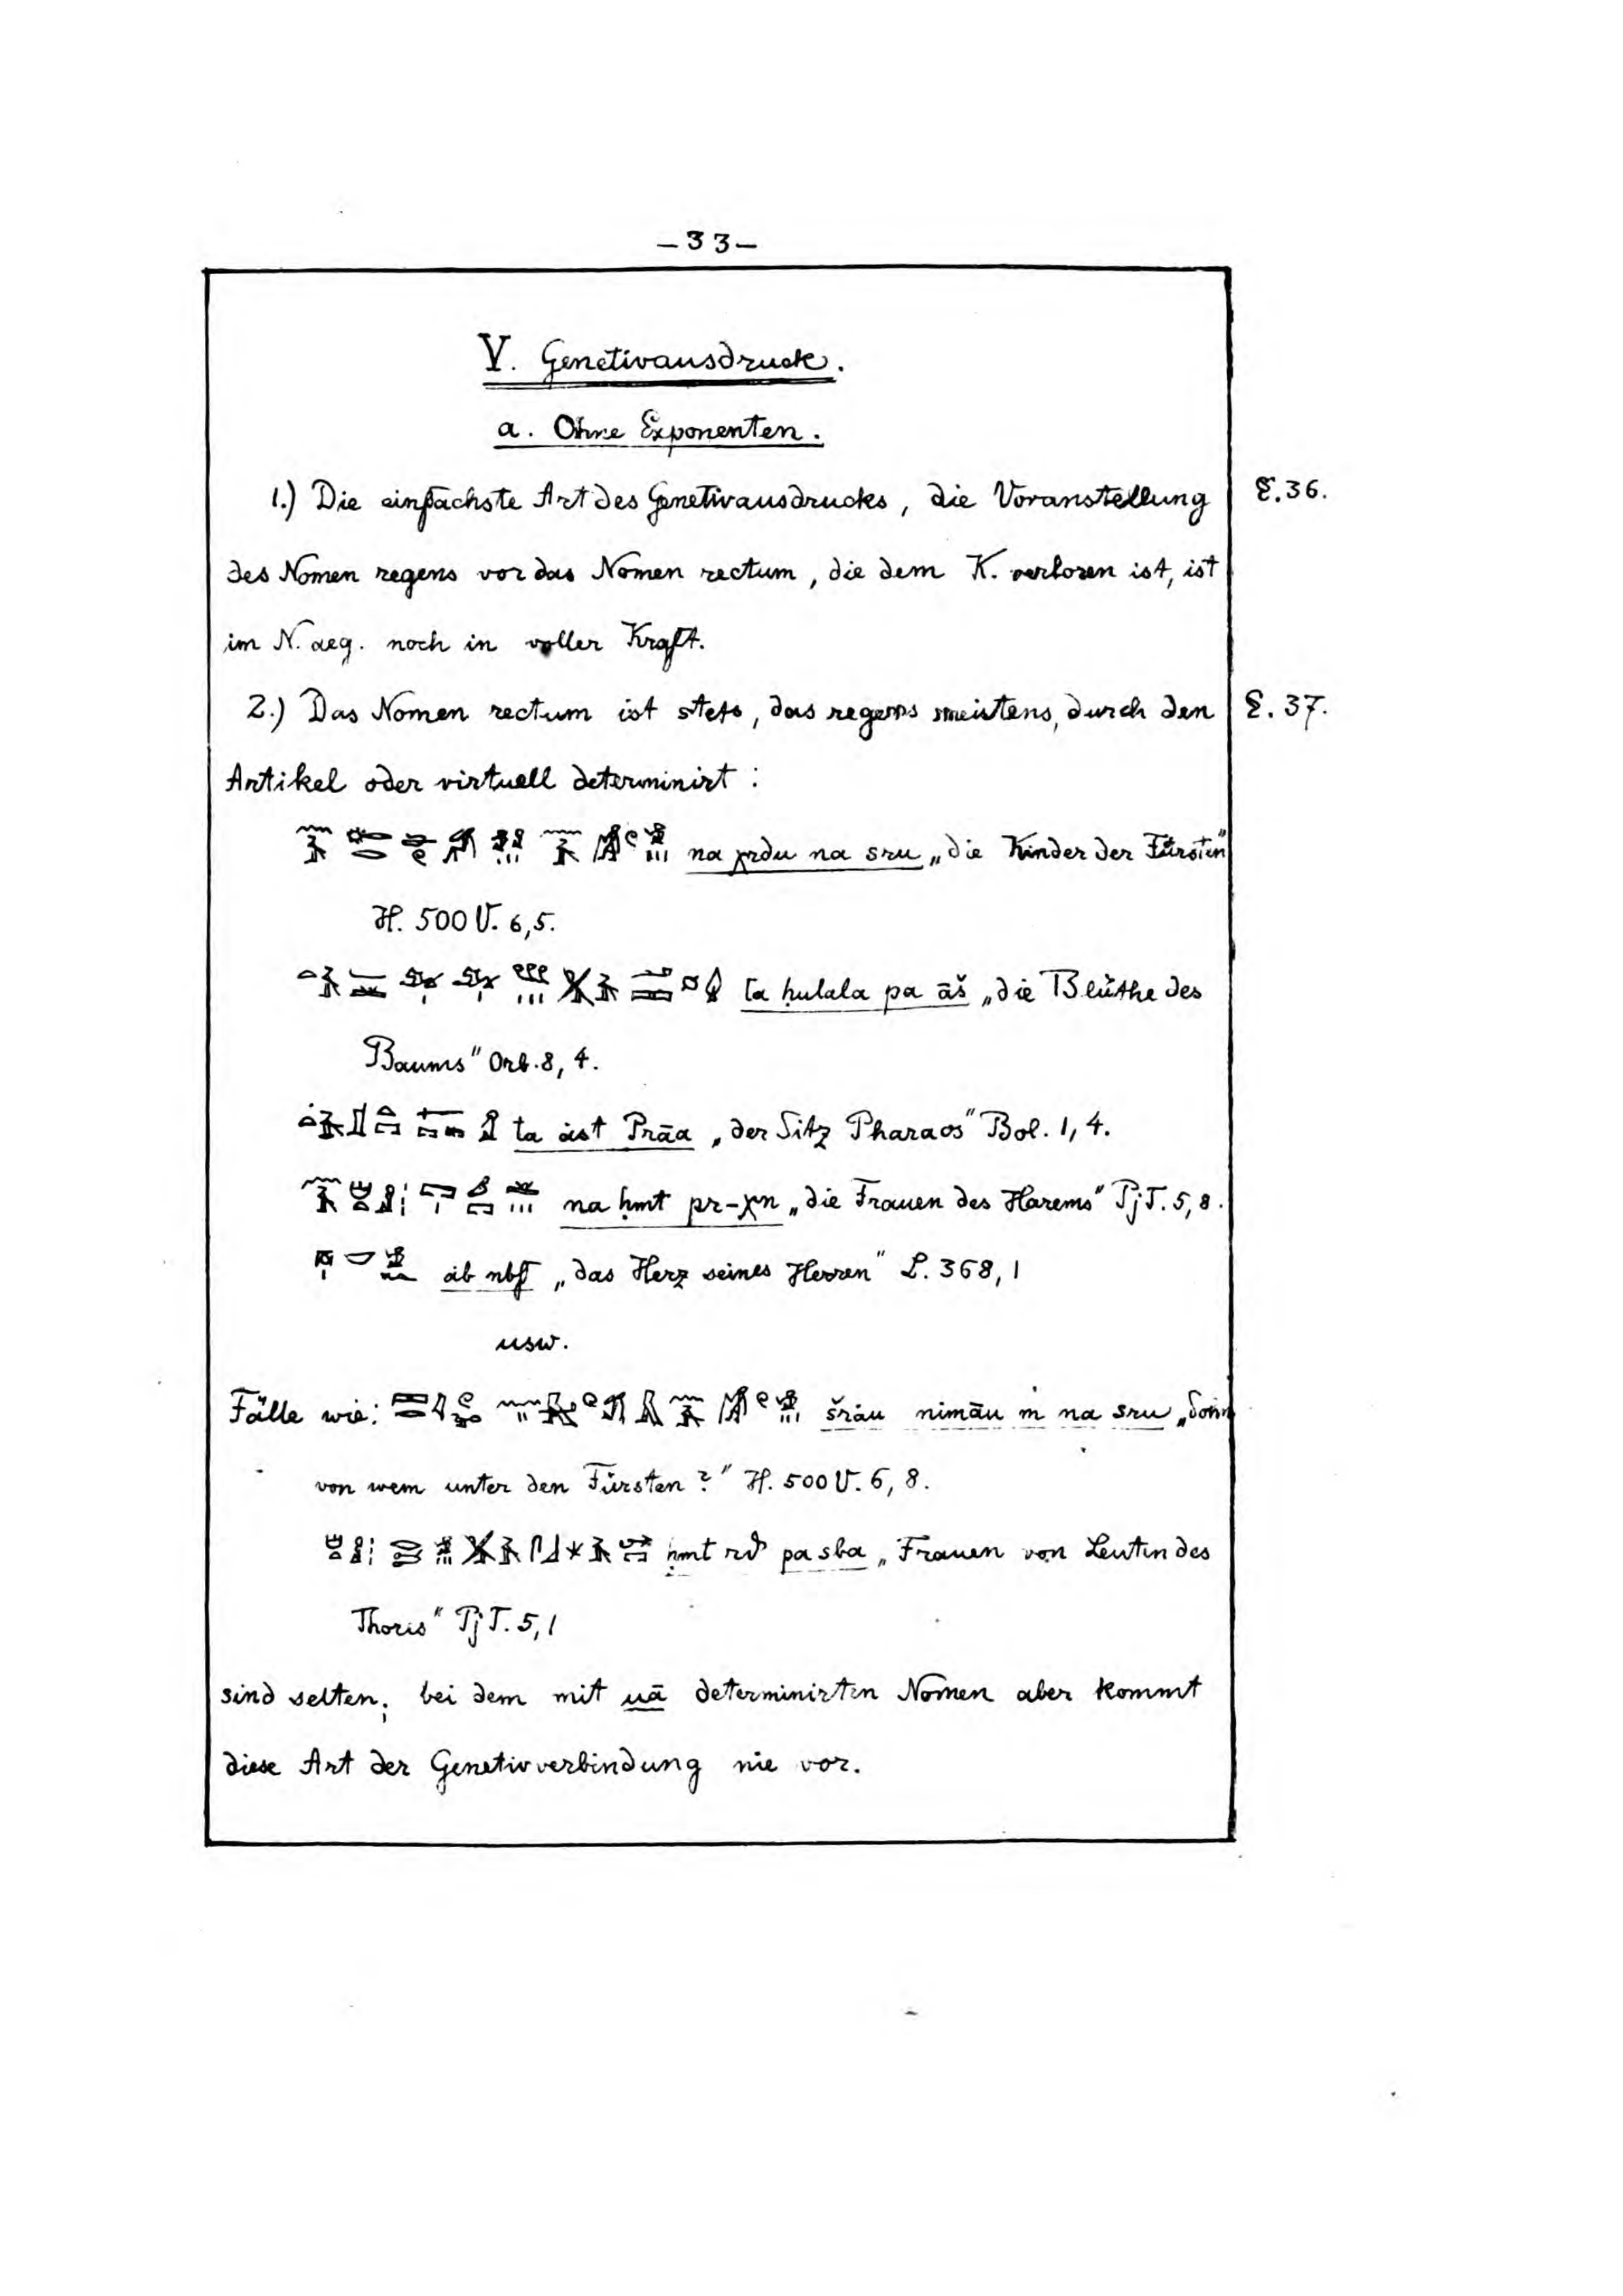 – 33 –
V. Genetivausdruck.
a. Ohne Exponenten.
1.) Die einfachste Art des Genetivausdrucks, die Voranstellung §. 36.
des Nomen regens vor das Nomen rectum, die dem K. verloren ist, ist
im N. aeg. noch in voller Kraft.
2.) Das Nomen rectum ist stets, das regens meistens, durch den §. 37.
Artikel oder virtuell determinirt:
na χrdu na sru „die Kinder der Fürsten"
H. 500 V. 6,5.
ta ḥulala pa āš „die Blüthe des
Baums" Orb. 8, 4.
ta ȧst Prāa „der Sitz Pharaos" Bol. 1, 4.
na ḥmt pr-χn „die Frauen des Harems" PjT. 5, 8.
ȧb nbf „das Herz seines Herren" L. 368, 1
usw.
Fälle wie: šrȧu nimāu m na sru „Sohn
von wem unter den Fürsten?" H. 500 V. 6, 8.
ḥmt pa sba „Frauen von Leuten des
Thores" PjT. 5, 1
sind selten; bei dem mit uā determinirten Nomen aber kommt
diese Art der Genetivverbindung nie vor.